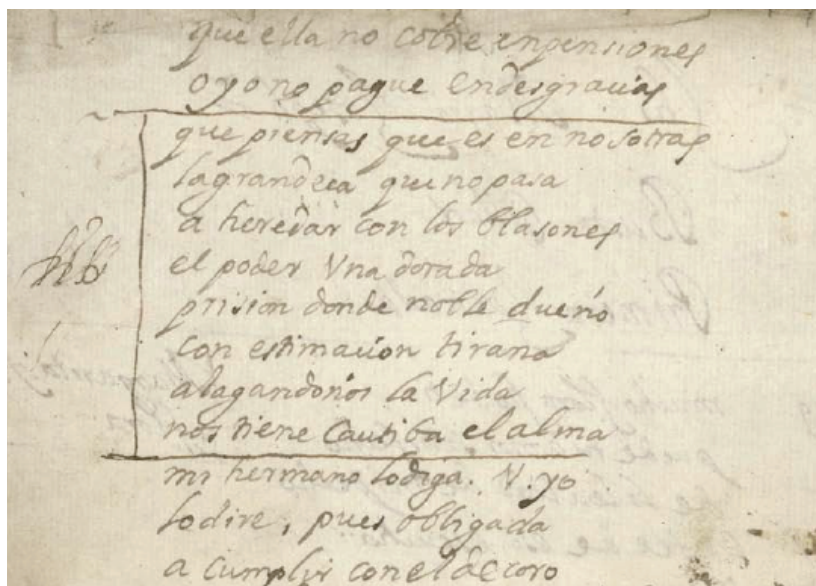 que ella no cobre en pensiones
o yo no pague en desgracias
que piensas que es en nosotras
la grandeça que no pasa
a heredar con los blasones
el poder Vna dorada
prision donde noble dueño
con estimacion tirana
alagandonos la Vida
nos tiene Cautiba el alma
mi hermano lo diga. V. yo
lo dire, pues obligada
a cumplir con el decoro